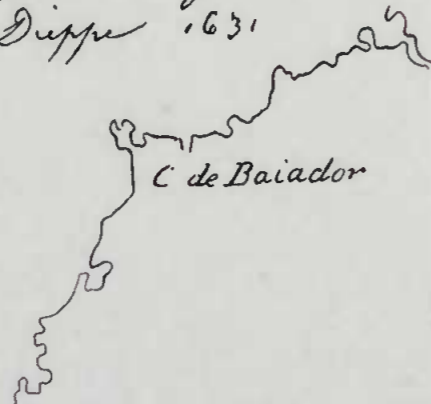 Dieppe 1631
C de Baiador